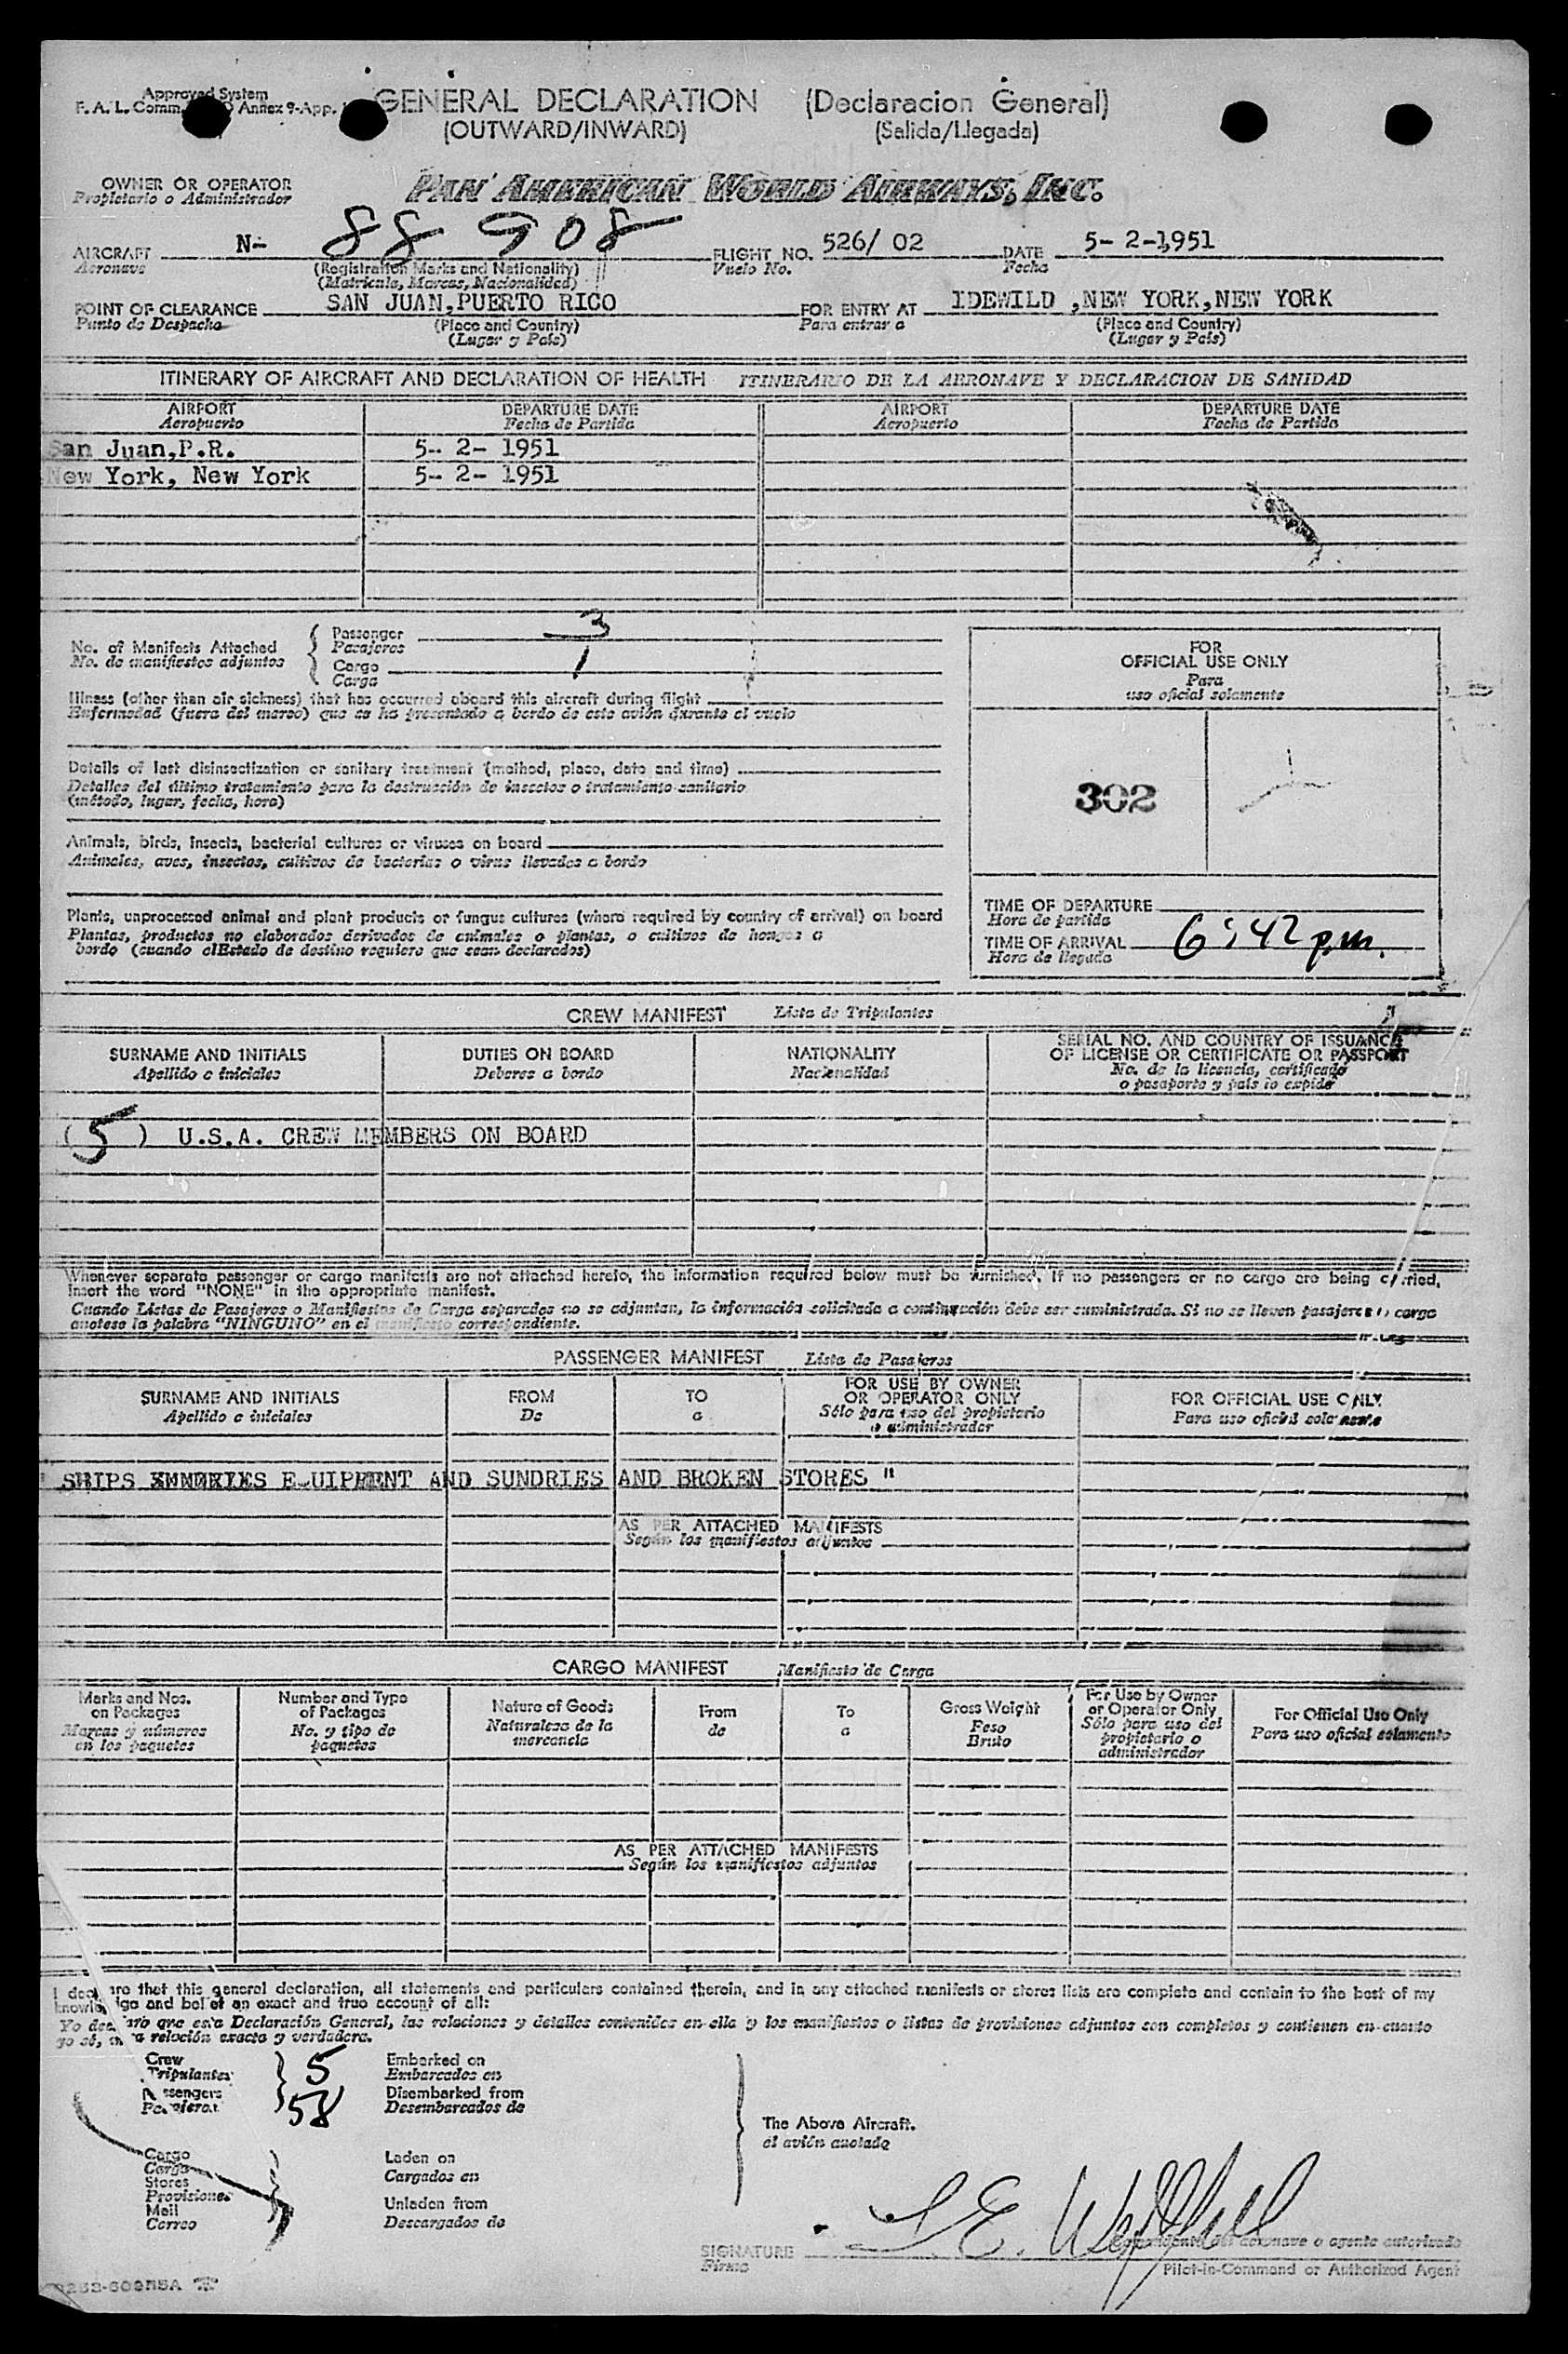 Approved System
F. A. L. Comm. Annex 9-App.
GENERAL DECLARATION (Declaracion General)
(OUTWARD/INWARD) (Salida/Llegada)
OWNER OR OPERATOR PAN AMERICAN WORLD AIRWAYS, INC.
Propietario o Administrador
AIRCRAFT N- 88908 FLIGHT NO. 526/ 02 DATE 5- 2-1951
Aeronave (Registration Marks and Nationality) Vuelo No. Fecha
(Matricula, Marcas, Nacionalidad)
POINT OF CLEARANCE SAN JUAN,PUERTO RICO FOR ENTRY AT IDEWILD ,NEW YORK,NEW YORK
Punto de Despacho (Place and Country) Para entrar a (Place and Country)
(Lugar y País) (Lugar y País)
ITINERARY OF AIRCRAFT AND DECLARATION OF HEALTH ITINERARIO DE LA AERONAVE Y DECLARACION DE SANIDAD
AIRPORT DEPARTURE DATE AIRPORT DEPARTURE DATE
Aeropuerto Fecha de Partida Aeropuerto Fecha de Partida
San Juan,P.R. 5- 2- 1951
New York, New York 5- 2- 1951
No. of Manifests Attached
No. de manifiestos adjuntos
Passenger 3
Pasajeros
Cargo 1
Carga
Illness (other than air sickness) that has occurred aboard this aircraft during flight
Enfermedad (fuera del mareo) que se ha presentado a bordo de este avión durante el vuelo
Details of last disinsectization or sanitary treatment (method, place, date and time)
Detalles del último tratamiento para la destrucción de insectos o tratamiento sanitario
(método, lugar, fecha, hora)
Animals, birds, insects, bacterial cultures or viruses on board
Animales, aves, insectos, cultivos de bacterias o virus llevados a bordo
Plants, unprocessed animal and plant products or fungus cultures (where required by country of arrival) on board
Plantas, productos no elaborados derivados de animales o plantas, o cultivos de hongos a
bordo (cuando el Estado de destino requiera que sean declarados)
FOR
OFFICIAL USE ONLY
Para
uso oficial solamente
302
TIME OF DEPARTURE
Hora de partida
TIME OF ARRIVAL 6:42 p.m.
Hora de llegada
CREW MANIFEST Lista de Tripulantes
SURNAME AND INITIALS DUTIES ON BOARD NATIONALITY SERIAL NO. AND COUNTRY OF ISSUANCE
OF LICENSE OR CERTIFICATE OR PASSPORT
Apellido e iniciales Deberes a bordo Nacionalidad No. de la licencia, certificado
o pasaporte y país lo expide
( 5 ) U.S.A. CREW MEMBERS ON BOARD
Whenever separate passenger or cargo manifests are not attached hereto, the information required below must be furnished. If no passengers or no cargo are being carried,
insert the word "NONE" in the appropriate manifest.
Cuando Listas de Pasajeros o Manifiestos de Carga separados no se adjuntan, la información solicitada a continuación debe ser suministrada. Si no se llevan pasajeros o carga
anotese la palabra "NINGUNO" en el manifiesto correspondiente.
PASSENGER MANIFEST Lista de Pasajeros
SURNAME AND INITIALS FROM TO FOR USE BY OWNER FOR OFFICIAL USE ONLY
OR OPERATOR ONLY
Apellido e iniciales De a Sólo para uso del propietario Para uso oficial solamente
o administrador
" SHIPS EQUIPMENT AND SUNDRIES AND BROKEN STORES "
AS PER ATTACHED MANIFESTS
Según los manifiestos adjuntos
CARGO MANIFEST Manifiesto de Carga
Marks and Nos.
on Packages
Marcas y números
en los paquetes
Number and Type
of Packages
No. y tipo de
paquetes
Nature of Goods
Naturaleza de la
mercancía
From
de
To
a
Gross Weight
Peso
Bruto
For Use by Owner
or Operator Only
Sólo para uso del
propietario o
administrador
For Official Use Only
Para uso oficial solamente
AS PER ATTACHED MANIFESTS
Según los manifiestos adjuntos
I declare that this general declaration, all statements and particulars contained therein, and in any attached manifests or stores lists are complete and contain to the best of my
knowledge and belief an exact and true account of all:
Yo declaro que esta Declaración General, las relaciones y detalles contenidos en ella y los manifiestos o listas de provisiones adjuntos son completos y contienen en cuanto
yo sé, una relación exacta y verdadera.
Crew 5 Embarked on
Tripulantes Embarcados en
Passengers 58 Disembarked from
Pasajeros Desembarcados de
The Above Aircraft.
el avión anotado
Cargo Laden on
Carga Cargados en
Stores
Provisiones Unladen from
Mail Descargados de
Correo
SIGNATURE
Firma
del aeronave o agente autorizado
Pilot-in-Command or Authorized Agent